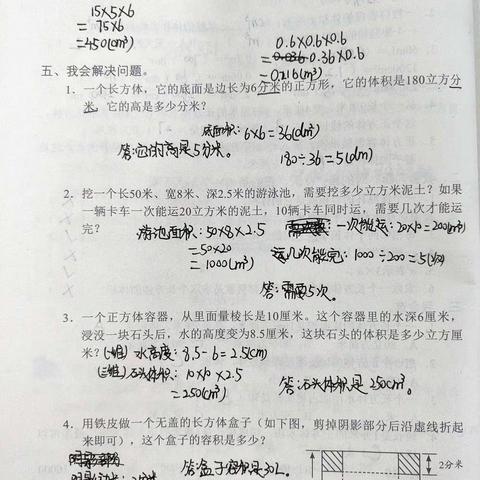 15×5×6
=75×6
=450(cm³)
0.6×0.6×0.6
=0.36×0.6
=0.216(m³)
五、我会解决问题。
1. 一个长方体，它的底面是边长为6分米的正方形，它的体积是180立方分
米，它的高是多少分米？
底面积：6×6=36(dm²)
180÷36=5(dm)
答：它的高是5分米。
2. 挖一个长50米、宽8米、深2.5米的游泳池，需要挖多少立方米泥土？如果
一辆卡车一次能运20立方米的泥土，10辆卡车同时运，需要几次才能运
完？
游池面积：50×8×2.5
=50×20
=1000(m³)
一次能运：20×10=200(m³)
运几次能完：1000÷200=5(次)
答：需要5次。
3. 一个正方体容器，从里面量棱长是10厘米。这个容器里的水深6厘米，
浸没一块石头后，水的高度变为8.5厘米，这块石头的体积是多少立方厘
米？
水高度：8.5-6=2.5(cm)
石头体积：10×10×2.5
=250(cm³)
答：石头体积是250cm³。
4. 用铁皮做一个无盖的长方体盒子（如下图，剪掉阴影部分后沿虚线折起
来即可），这个盒子的容积是多少？
答：盒子容积是30L。
2分米